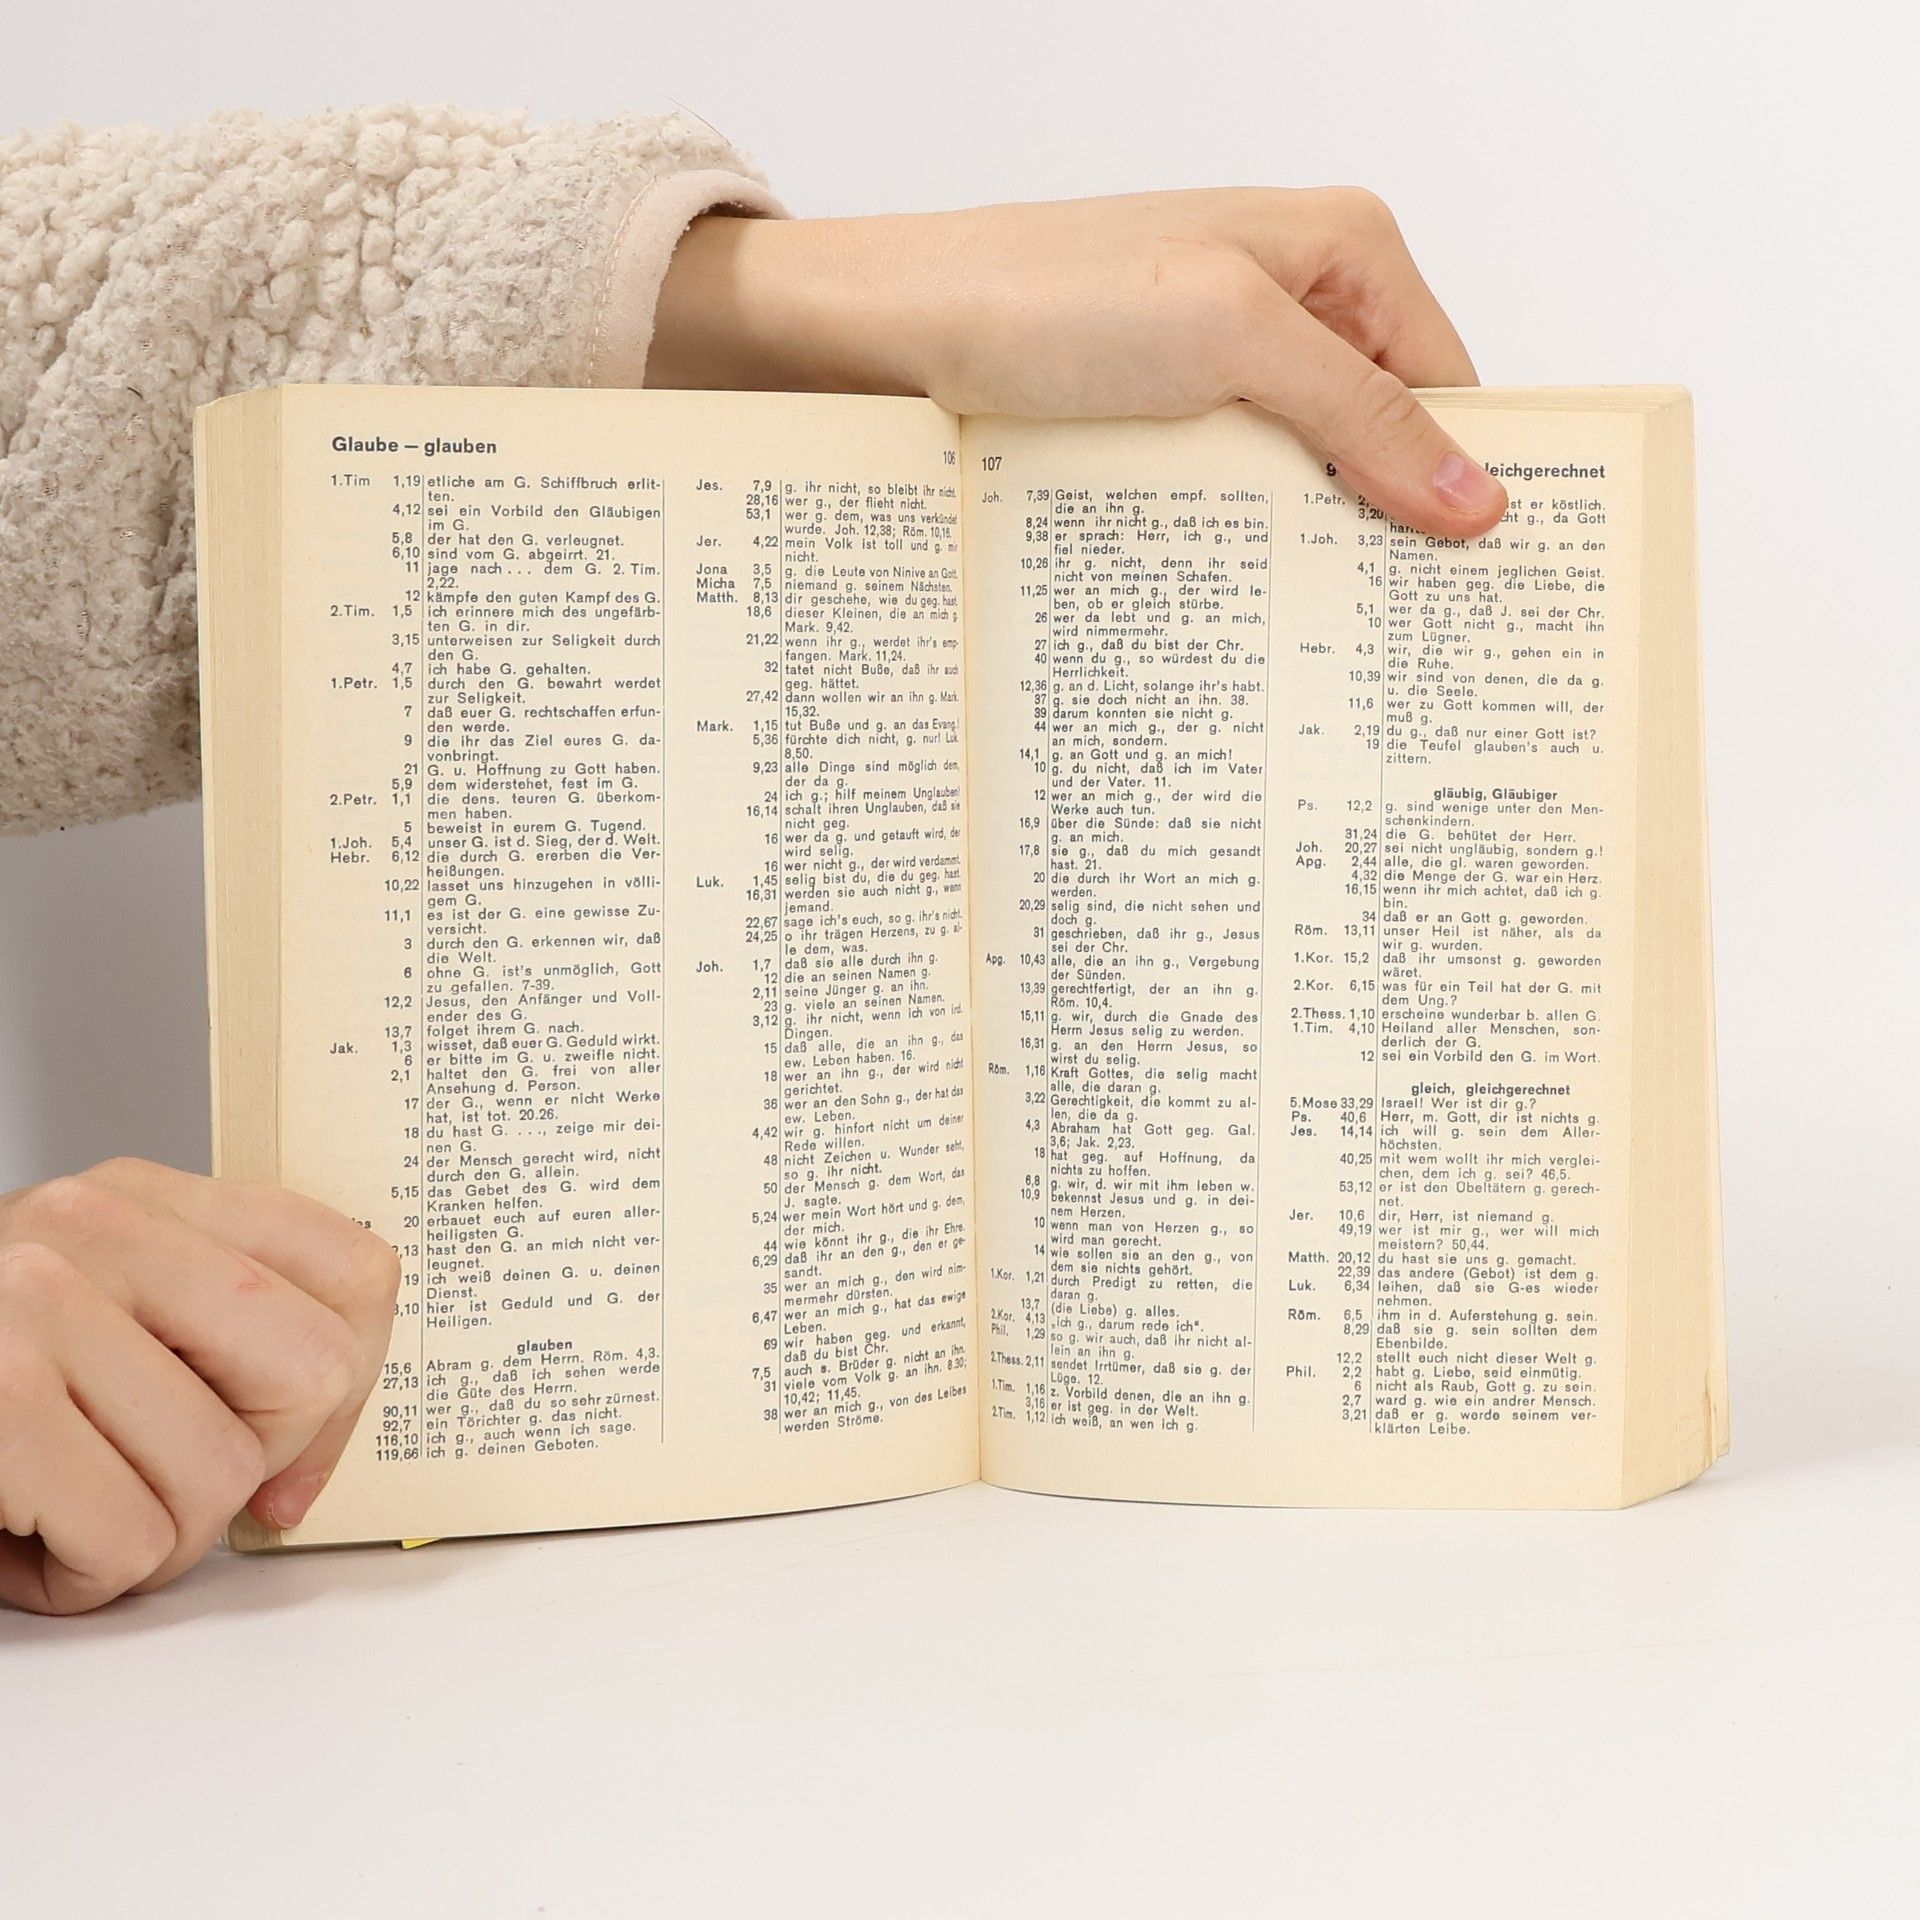 Glaube — glauben
106
1.Tim 1,19 etliche am G. Schiffbruch erlit-
ten.
4,12 sei ein Vorbild den Gläubigen
im G.
5,8 der hat den G. verleugnet.
6,10 sind vom G. abgeirrt. 21.
11 jage nach . . . dem G. 2. Tim.
2,22.
12 kämpfe den guten Kampf des G.
2.Tim. 1,5 ich erinnere mich des ungefärb-
ten G. in dir.
3,15 unterweisen zur Seligkeit durch
den G.
4,7 ich habe G. gehalten.
1.Petr. 1,5 durch den G. bewahrt werdet
zur Seligkeit.
7 daß euer G. rechtschaffen erfun-
den werde.
9 die ihr das Ziel eures G. da-
vonbringt.
21 G. u. Hoffnung zu Gott haben.
5,9 dem widerstehet, fest im G.
2.Petr. 1,1 die dens. teuren G. überkom-
men haben.
5 beweist in eurem G. Tugend.
1.Joh. 5,4 unser G. ist d. Sieg, der d. Welt.
Hebr. 6,12 die durch G. ererben die Ver-
heißungen.
10,22 lasset uns hinzugehen in völli-
gem G.
11,1 es ist der G. eine gewisse Zu-
versicht.
3 durch den G. erkennen wir, daß
die Welt.
6 ohne G. ist's unmöglich, Gott
zu gefallen. 7-39.
12,2 Jesus, den Anfänger und Voll-
ender des G.
13,7 folget ihrem G. nach.
Jak. 1,3 wisset, daß euer G. Geduld wirkt.
6 er bitte im G. u. zweifle nicht.
2,1 haltet den G. frei von aller
Ansehung d. Person.
17 der G., wenn er nicht Werke
hat, ist tot. 20.26.
18 du hast G. . . ., zeige mir dei-
nen G.
24 der Mensch gerecht wird, nicht
durch den G. allein.
5,15 das Gebet des G. wird dem
Kranken helfen.
20 erbauet euch auf euren aller-
heiligsten G.
2,13 hast den G. an mich nicht ver-
leugnet.
19 ich weiß deinen G. u. deinen
Dienst.
3,10 hier ist Geduld und G. der
Heiligen.
glauben
15,6 Abram g. dem Herrn. Röm. 4,3.
27,13 ich g., daß ich sehen werde
die Güte des Herrn.
90,11 wer g., daß du so sehr zürnest.
92,7 ein Törichter g. das nicht.
116,10 ich g., auch wenn ich sage.
119,66 ich g. deinen Geboten.
Jes. 7,9 g. ihr nicht, so bleibt ihr nicht.
28,16 wer g., der flieht nicht.
53,1 wer g. dem, was uns verkündet
wurde. Joh. 12,38; Röm. 10,16.
Jer. 4,22 mein Volk ist toll und g. mir
nicht.
Jona 3,5 g. die Leute von Ninive an Gott.
Micha 7,5 niemand g. seinem Nächsten.
Matth. 8,13 dir geschehe, wie du geg. hast.
18,6 dieser Kleinen, die an mich g.
Mark. 9,42.
21,22 wenn ihr g., werdet ihr's emp-
fangen. Mark. 11,24.
32 tatet nicht Buße, daß ihr auch
geg. hättet.
27,42 dann wollen wir an ihn g. Mark.
15,32.
Mark. 1,15 tut Buße und g. an das Evang.!
5,36 fürchte dich nicht, g. nur! Luk.
8,50.
9,23 alle Dinge sind möglich dem,
der da g.
24 ich g.; hilf meinem Unglauben!
16,14 schalt ihren Unglauben, daß sie
nicht geg.
16 wer da g. und getauft wird, der
wird selig.
16 wer nicht g., der wird verdammt.
Luk. 1,45 selig bist du, die du geg. hast.
16,31 werden sie auch nicht g., wenn
jemand.
22,67 sage ich's euch, so g. ihr's nicht.
24,25 o ihr trägen Herzens, zu g. al-
le dem, was.
Joh. 1,7 daß sie alle durch ihn g.
12 die an seinen Namen g.
2,11 seine Jünger g. an ihn.
23 g. viele an seinen Namen.
3,12 g. ihr nicht, wenn ich von ird.
Dingen.
15 daß alle, die an ihn g., das
ew. Leben haben. 16.
18 wer an ihn g., der wird nicht
gerichtet.
36 wer an den Sohn g., der hat das
ew. Leben.
4,42 wir g. hinfort nicht um deiner
Rede willen.
48 nicht Zeichen u. Wunder seht,
so g. ihr nicht.
50 der Mensch g. dem Wort, das
J. sagte.
5,24 wer mein Wort hört und g. dem,
der mich.
44 wie könnt ihr g., die ihr Ehre.
6,29 daß ihr an den g., den er ge-
sandt.
35 wer an mich g., den wird nim-
mermehr dürsten.
6,47 wer an mich g., hat das ewige
Leben.
69 wir haben geg. und erkannt,
daß du bist Chr.
7,5 auch s. Brüder g. nicht an ihn.
31 viele vom Volk g. an ihn. 8.30;
10,42; 11,45.
38 wer an mich g., von des Leibes
werden Ströme.
107
leichgerechnet
Joh. 7,39 Geist, welchen empf. sollten,
die an ihn g.
8,24 wenn ihr nicht g., daß ich es bin.
9,38 er sprach: Herr, ich g., und
fiel nieder.
10,26 ihr g. nicht, denn ihr seid
nicht von meinen Schafen.
11,25 wer an mich g., der wird le-
ben, ob er gleich stürbe.
26 wer da lebt und g. an mich,
wird nimmermehr.
27 ich g., daß du bist der Chr.
40 wenn du g., so würdest du die
Herrlichkeit.
12,36 g. an d. Licht, solange ihr's habt.
37 g. sie doch nicht an ihn. 38.
39 darum konnten sie nicht g.
44 wer an mich g., der g. nicht
an mich, sondern.
14,1 g. an Gott und g. an mich!
10 g. du nicht, daß ich im Vater
und der Vater. 11.
12 wer an mich g., der wird die
Werke auch tun.
16,9 über die Sünde: daß sie nicht
g. an mich.
17,8 sie g., daß du mich gesandt
hast. 21.
20 die durch ihr Wort an mich g.
werden.
20,29 selig sind, die nicht sehen und
doch g.
31 geschrieben, daß ihr g., Jesus
sei der Chr.
Apg. 10,43 alle, die an ihn g., Vergebung
der Sünden.
13,39 gerechtfertigt, der an ihn g.
Röm. 10,4.
15,11 g. wir, durch die Gnade des
Herrn Jesus selig zu werden.
16,31 g. an den Herrn Jesus, so
wirst du selig.
Röm. 1,16 Kraft Gottes, die selig macht
alle, die daran g.
3,22 Gerechtigkeit, die kommt zu al-
len, die da g.
4,3 Abraham hat Gott geg. Gal.
3,6; Jak. 2,23.
18 hat geg. auf Hoffnung, da
nichts zu hoffen.
6,8 g. wir, d. wir mit ihm leben w.
10,9 bekennst Jesus und g. in dei-
nem Herzen.
10 wenn man von Herzen g., so
wird man gerecht.
14 wie sollen sie an den g., von
dem sie nichts gehört.
1.Kor. 1,21 durch Predigt zu retten, die
daran g.
13,7 (die Liebe) g. alles.
2.Kor. 4,13 „ich g., darum rede ich“.
Phil. 1,29 so g. wir auch, daß ihr nicht al-
lein an ihn g.
2.Thess. 2,11 sendet Irrtümer, daß sie g. der
Lüge. 12.
1.Tim. 1,16 z. Vorbild denen, die an ihn g.
3,16 er ist geg. in der Welt.
2.Tim. 1,12 ich weiß, an wen ich g.
1.Petr. ist er köstlich.
3,20 g., da Gott
1.Joh. 3,23 sein Gebot, daß wir g. an den
Namen.
4,1 g. nicht einem jeglichen Geist.
16 wir haben geg. die Liebe, die
Gott zu uns hat.
5,1 wer da g., daß J. sei der Chr.
10 wer Gott nicht g., macht ihn
zum Lügner.
Hebr. 4,3 wir, die wir g., gehen ein in
die Ruhe.
10,39 wir sind von denen, die da g.
u. die Seele.
11,6 wer zu Gott kommen will, der
muß g.
Jak. 2,19 du g., daß nur einer Gott ist?
19 die Teufel glauben's auch u.
zittern.
gläubig, Gläubiger
Ps. 12,2 g. sind wenige unter den Men-
schenkindern.
31,24 die G. behütet der Herr.
Joh. 20,27 sei nicht ungläubig, sondern g.!
Apg. 2,44 alle, die gl. waren geworden.
4,32 die Menge der G. war ein Herz.
16,15 wenn ihr mich achtet, daß ich g.
bin.
34 daß er an Gott g. geworden.
Röm. 13,11 unser Heil ist näher, als da
wir g. wurden.
1.Kor. 15,2 daß ihr umsonst g. geworden
wäret.
2.Kor. 6,15 was für ein Teil hat der G. mit
dem Ung.?
2.Thess. 1,10 erscheine wunderbar b. allen G.
1.Tim. 4,10 Heiland aller Menschen, son-
derlich der G.
12 sei ein Vorbild den G. im Wort.
gleich, gleichgerechnet
5.Mose 33,29 Israel! Wer ist dir g.?
Ps. 40,6 Herr, m. Gott, dir ist nichts g.
Jes. 14,14 ich will g. sein dem Aller-
höchsten.
40,25 mit wem wollt ihr mich verglei-
chen, dem ich g. sei? 46,5.
53,12 er ist den Übeltätern g. gerech-
net.
Jer. 10,6 dir, Herr, ist niemand g.
49,19 wer ist mir g., wer will mich
meistern? 50,44.
Matth. 20,12 du hast sie uns g. gemacht.
22,39 das andere (Gebot) ist dem g.
Luk. 6,34 leihen, daß sie G-es wieder
nehmen.
Röm. 6,5 ihm in d. Auferstehung g. sein.
8,29 daß sie g. sein sollten dem
Ebenbilde.
12,2 stellt euch nicht dieser Welt g.
Phil. 2,2 habt g. Liebe, seid einmütig.
6 nicht als Raub, Gott g. zu sein.
2,7 ward g. wie ein andrer Mensch.
3,21 daß er g. werde seinem ver-
klärten Leibe.